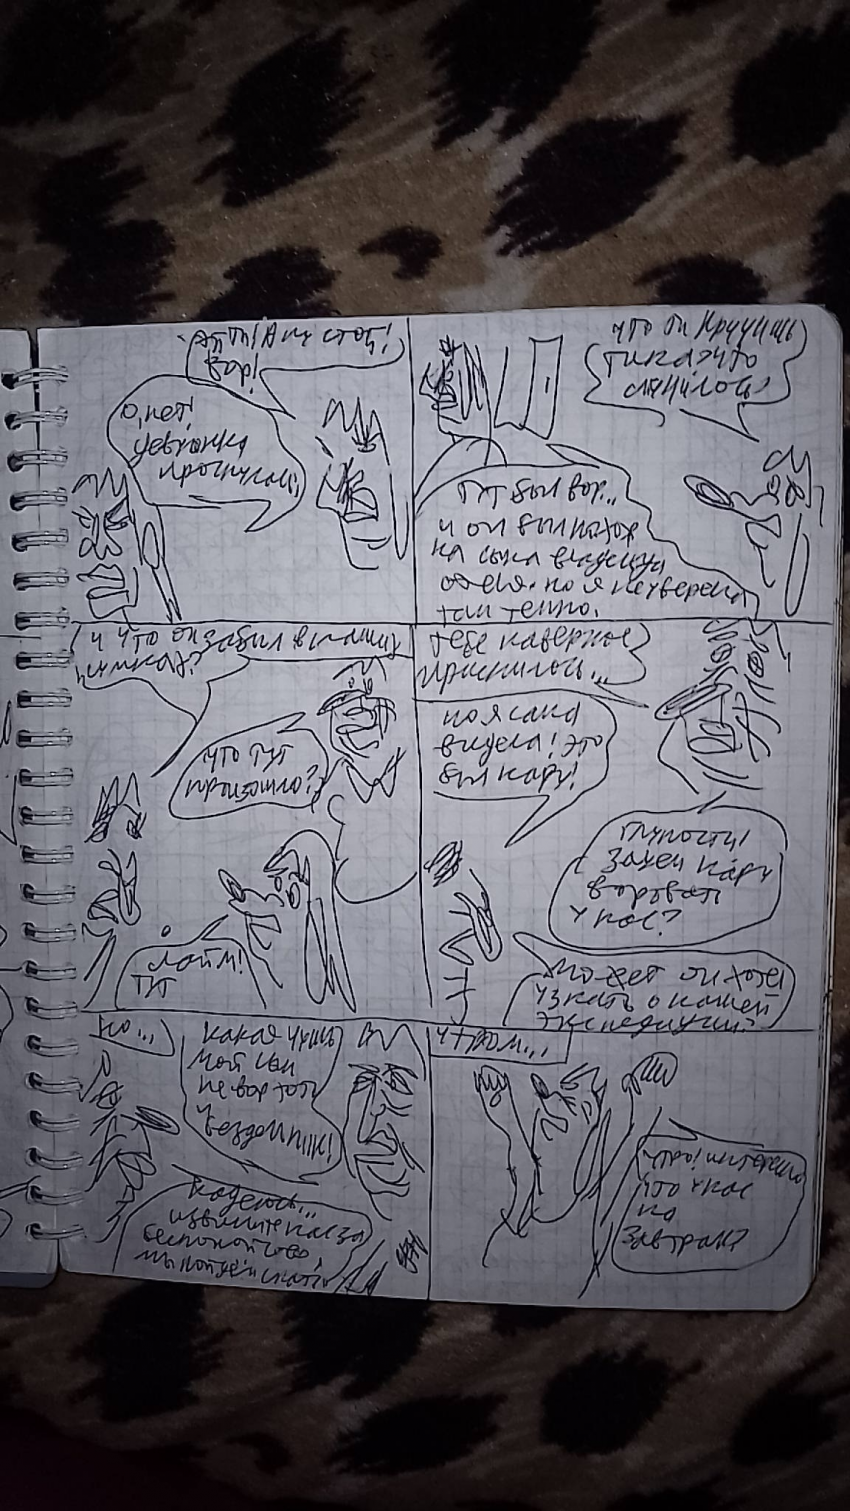 стой!
Вор!
О, нет!
девчонка
проснулась!
Что ты кричишь
Тика? Что
случилось?
Тут был вор...
и он был похож
на сына владельца
отеля. но я не уверена
там темно.
и что он забыл в наших
Что тут
произошло?
Лайм!
Тут
Тебе наверное
приснилось...
но я сама
видела! Это
был Кару!
Глупости!
Зачем Кару
воровать
у нас?
Может он хотел
узнать о нашей
экспедиции?
но...
Какая чушь
мой сын
не вор
Надеюсь...
извините нас за
беспокойство,
мы пойдём спать!
Утром...
Утро! интересно
что у нас
на
завтрак?